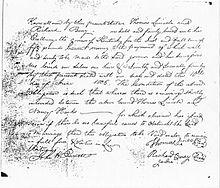 Know all men by these presents that we Thomas Lincoln and
Richard Berry are held and firmly bound unto his
Excellency the governor of Kentucky in the Just and full sum of
fifty pounds current money the payment of which well
and truly to be made to the said governor and his successors
we bind ourselves our heirs &c Jointly and severally firmly
by these presents sealed with our seals and dated this 10th
day of 1806 The condition of the above
obligation is such that whereas there is a marriage shortly
intended between the above bound Thomas Lincoln and
Nancy Hanks for which a license has issued
now if there be no lawful cause to obstruct the said
marriage then this obligation to be void or else to remain
in full force & virtue in law
Thomas Lincoln
Richard Berry